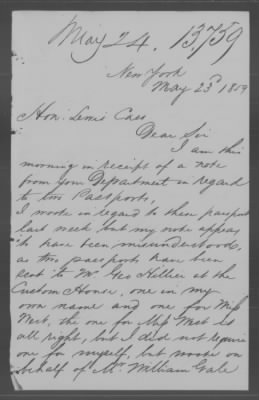 May 24. 13,759
New York
May 23d 1859
Hon. Lewis Cass
Dear Sir
I am this
morning in receipt of a note
from your Department in regard
to two Passports,
I wrote in regard to these passports
last week but my note appears
to have been misunderstood,
as two passports have been
sent to Mr. Geo Hillier at the
Custom House, one in my
own name and one for Miss
West, the one for Miss West is
all right, but I did not require
one for myself, but wrote on
behalf of Mr William Gale